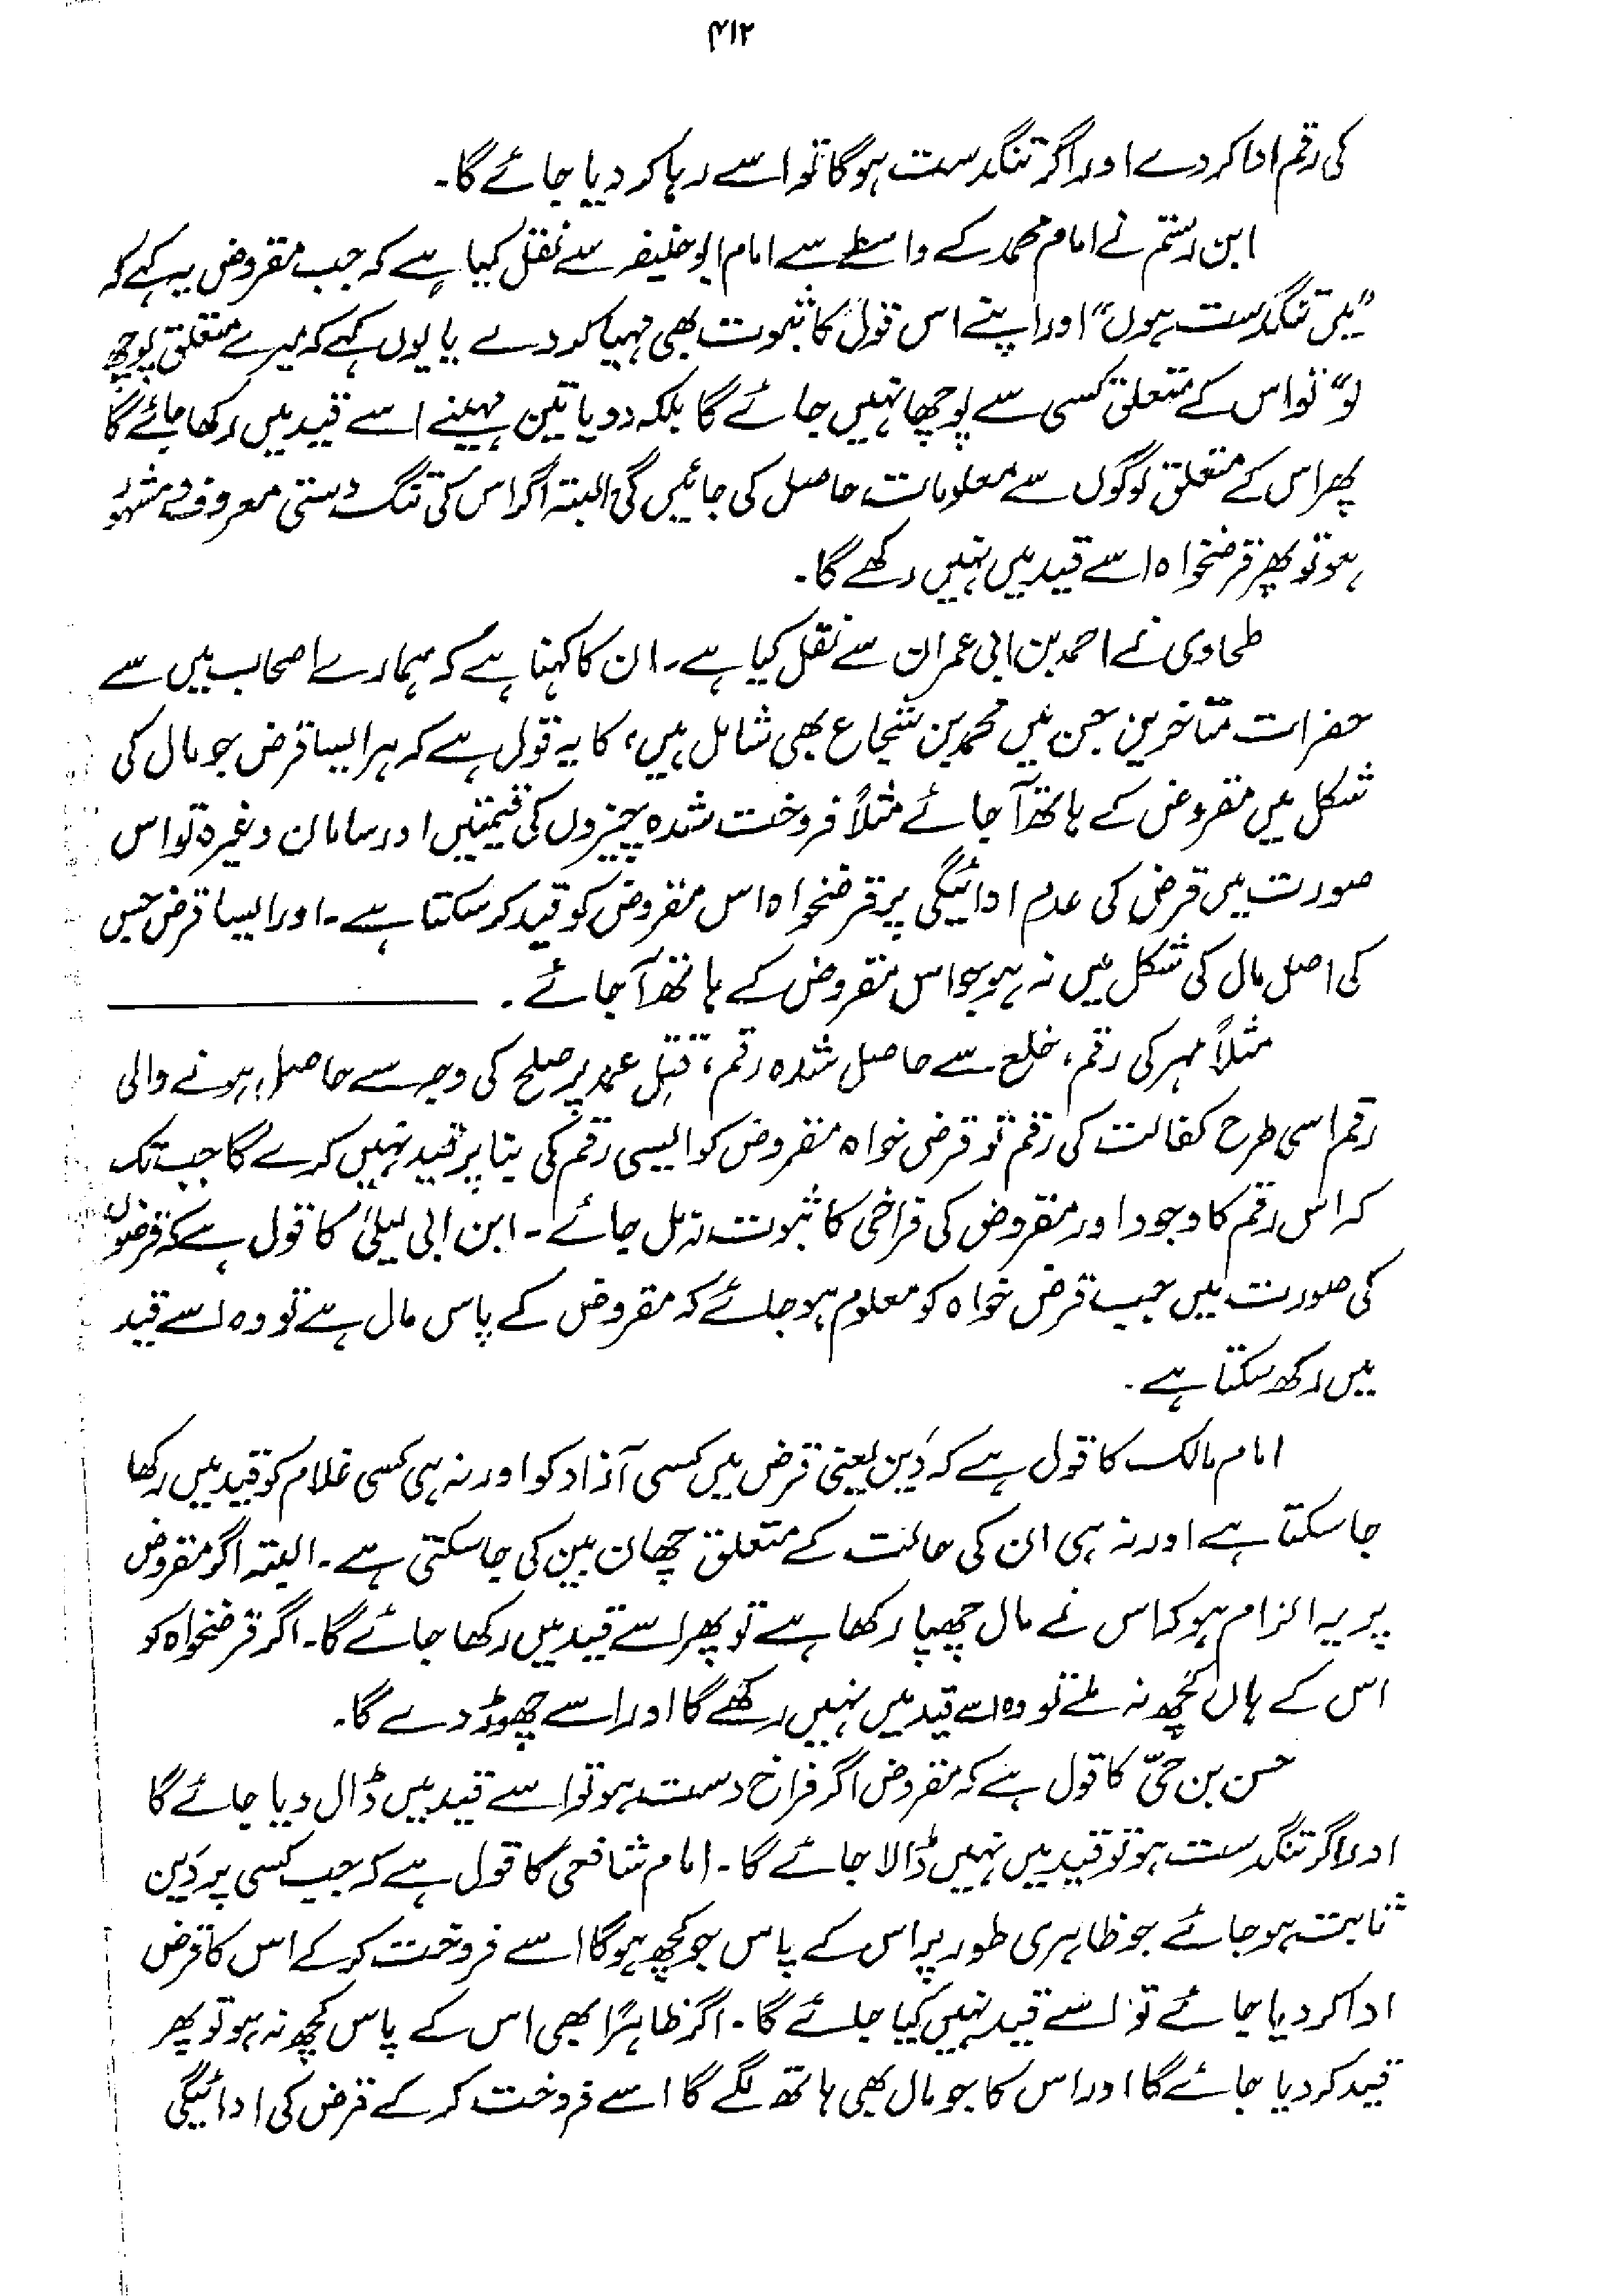 ۴۱۲
کی رقم ادا کردے اور اگر تنگدست ہوگا تو اسے رہا کر دیا جائے گا۔
ابن رستم نے امام محمد کے واسطے سے امام ابو حنیفہ سے نقل کیا ہے کہ جب مقروض یہ کہے کہ
"میں تنگدست ہوں" اور اپنے اس قول کا ثبوت بھی مہیا کر دے یا یوں کہے کہ میرے متعلق پوچھ
لو" تو اس کے متعلق کسی سے پوچھا نہیں جائے گا بلکہ دو یا تین مہینے اسے قید میں رکھا جائے گا
پھر اس کے متعلق لوگوں سے معلومات حاصل کی جائیں گی البتہ اگر اس کی تنگ دستی معروف و مشہور
ہو تو پھر قرضخواہ اسے قید میں نہیں رکھے گا۔
طحاوی نے احمد بن ابی عمران سے نقل کیا ہے۔ ان کا کہنا ہے کہ ہمارے اصحاب میں سے
حضرات متاخرین جن میں محمد بن شجاع بھی شامل ہیں، کا یہ قول ہے کہ ہر ایسا قرض جو مال کی
شکل میں مقروض کے ہاتھ آ جائے مثلاً فروخت شدہ چیزوں کی قیمتیں اور سامان وغیرہ تو اس
صورت میں قرض کی عدم ادائیگی پر قرضخواہ اس مقروض کو قید کر سکتا ہے۔ اور ایسا قرض جس
کی اصل مال کی شکل میں نہ ہو جو اس مقروض کے ہاتھ آ جائے۔
مثلاً مہر کی رقم، خلع سے حاصل شدہ رقم، قتل عمد پر صلح کی وجہ سے حاصل ہونے والی
رقم اسی طرح کفالت کی رقم تو قرض خواہ مقروض کو ایسی رقم کی بنا پر قید نہیں کرے گا جب تک
کہ اس رقم کا وجود اور مقروض کی فراخی کا ثبوت نہ مل جائے۔ ابن ابی لیلیٰ کا قول ہے کہ قرضوں
کی صورت میں جب قرض خواہ کو معلوم ہو جائے کہ مقروض کے پاس مال ہے تو وہ اسے قید
میں رکھ سکتا ہے۔
امام مالک کا قول ہے کہ دَین یعنی قرض میں کسی آزاد کو اور نہ ہی کسی غلام کو قید میں رکھا
جا سکتا ہے اور نہ ہی ان کی حالت کے متعلق چھان بین کی جا سکتی ہے۔ البتہ اگر مقروض
پر یہ الزام ہو کہ اس نے مال چھپا رکھا ہے تو پھر اسے قید میں رکھا جائے گا۔ اگر قرضخواہ کو
اس کے ہاں کچھ نہ ملے تو وہ اسے قید میں نہیں رکھے گا اور اسے چھوڑ دے گا۔
حسن بن حیّ کا قول ہے کہ مقروض اگر فراخ دست ہو تو اسے قید میں ڈال دیا جائے گا
اور اگر تنگدست ہو تو قید میں نہیں ڈالا جائے گا۔ امام شافعی کا قول ہے کہ جب کسی پر دَین
ثابت ہو جائے جو ظاہری طور پر اس کے پاس جو کچھ ہوگا اسے فروخت کر کے اس کا قرض
ادا کر دیا جائے تو اسے قید نہیں کیا جائے گا۔ اگر ظاہرًا بھی اس کے پاس کچھ نہ ہو تو پھر
قید کر دیا جائے گا اور اس کا جو مال بھی ہاتھ لگے گا اسے فروخت کر کے قرض کی ادائیگی